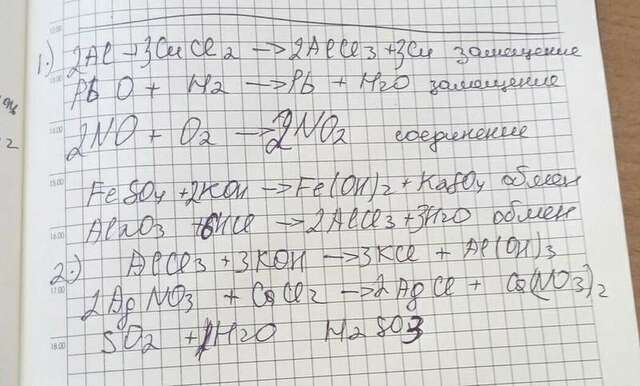 1.) 2Al + 3CuCl2 → 2AlCl3 + 3Cu замещение
PbO + H2 → Pb + H2O замещение
2NO + O2 → 2NO2 соединение
FeSO4 + 2KOH → Fe(OH)2 + K2SO4 обмен
Al2O3 + 6HCl → 2AlCl3 + 3H2O обмен
2.) AlCl3 + 3KOH → 3KCl + Al(OH)3
2AgNO3 + CaCl2 → 2AgCl + Ca(NO3)2
SO2 + H2O H2SO3
13:00
14:00
15:00
16:00
17:00
18:00